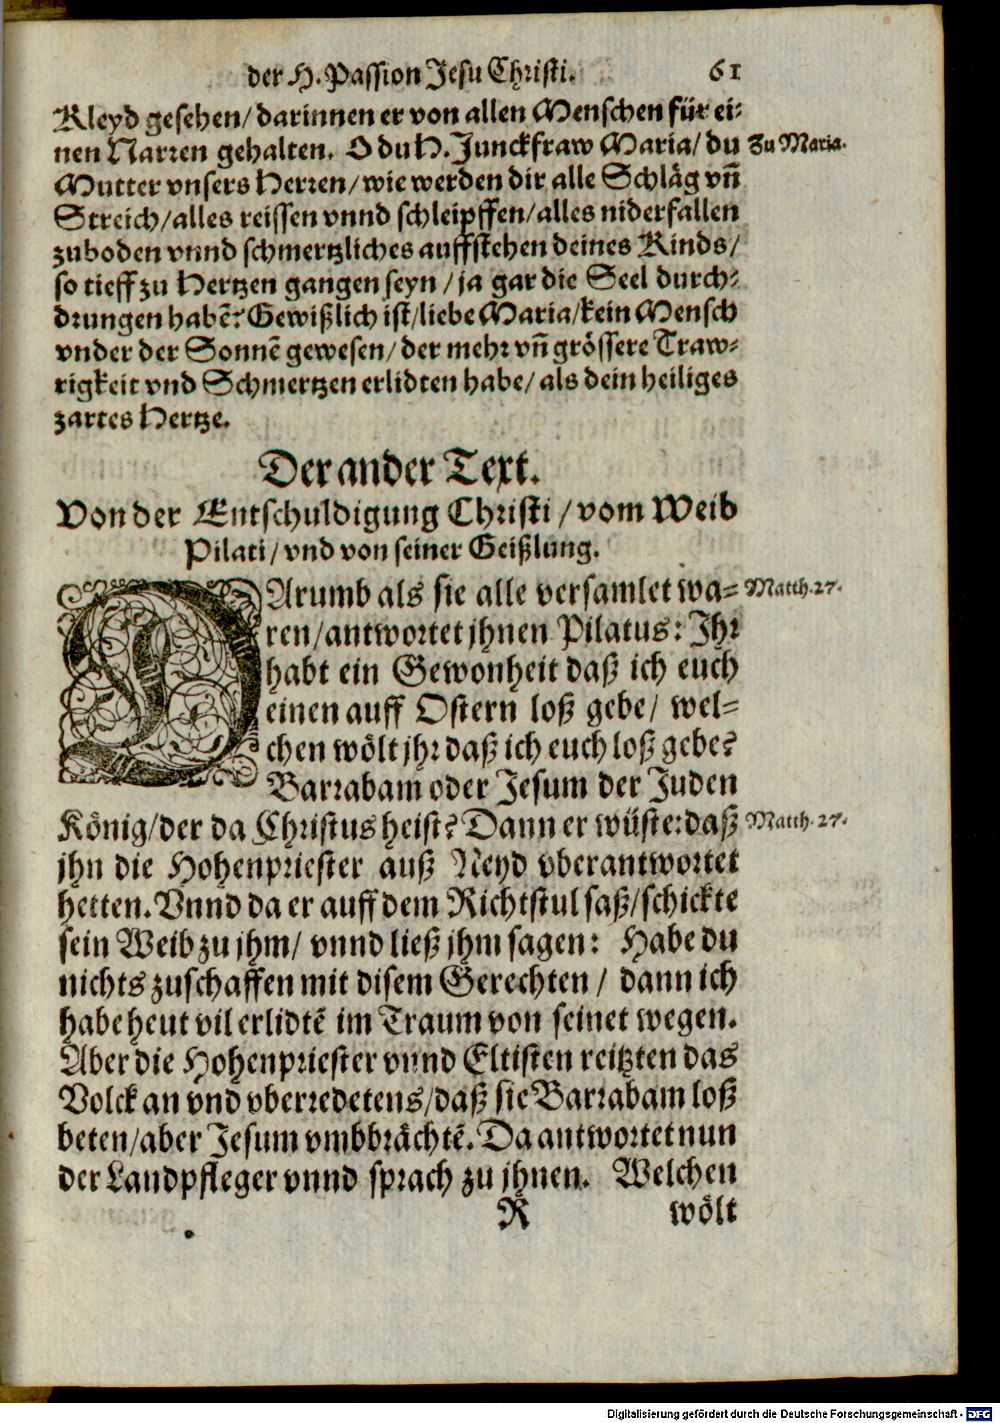 der H. Passion Jesu Christi. 61
Kleyd gesehen/darinnen er von allen Menschen für ei-
nen Narren gehalten. O du H. Junckfraw Maria/du Zu Maria.
Mutter vnsers Herren/wie werden dir alle Schläg vñ
Streich/alles reissen vnnd schleipffen/alles niderfallen
zuboden vnnd schmertzliches auffstehen deines Kinds/
so tieff zu Hertzen gangen seyn/ja gar die Seel durch-
drungen habẽ? Gewißlich ist/liebe Maria/kein Mensch
vnder der Sonnẽ gewesen/der mehr vñ grössere Traw-
rigkeit vnd Schmertzen erlidten habe/als dein heiliges
zartes Hertze.
Der ander Text.
Von der Entschuldigung Christi/vom Weib
Pilati/vnd von seiner Geißlung.
DArumb als sie alle versamlet wa- Matth. 27.
ren/antwortet jhnen Pilatus: Ihr
habt ein Gewonheit daß ich euch
einen auff Ostern loß gebe/wel-
chen wölt jhr daß ich euch loß gebe?
Barrabam oder Jesum der Juden
König/der da Christus heist? Dann er wüste: daß Matth. 27.
jhn die Hohenpriester auß Neyd vberantwortet
hetten. Vnnd da er auff dem Richtstul saß/schickte
sein Weib zu jhm/vnnd ließ jhm sagen: Habe du
nichts zuschaffen mit disem Gerechten/dann ich
habe heut vil erlidtẽ im Traum von seinet wegen.
Aber die Hohenpriester vnnd Eltisten reitzten das
Volck an vnd vberredetens/daß sie Barrabam loß
beten/aber Jesum vmbbrächtẽ. Da antwortet nun
der Landpfleger vnnd sprach zu jhnen. Welchen
R wölt
Digitalisierung gefördert durch die Deutsche Forschungsgemeinschaft - DFG